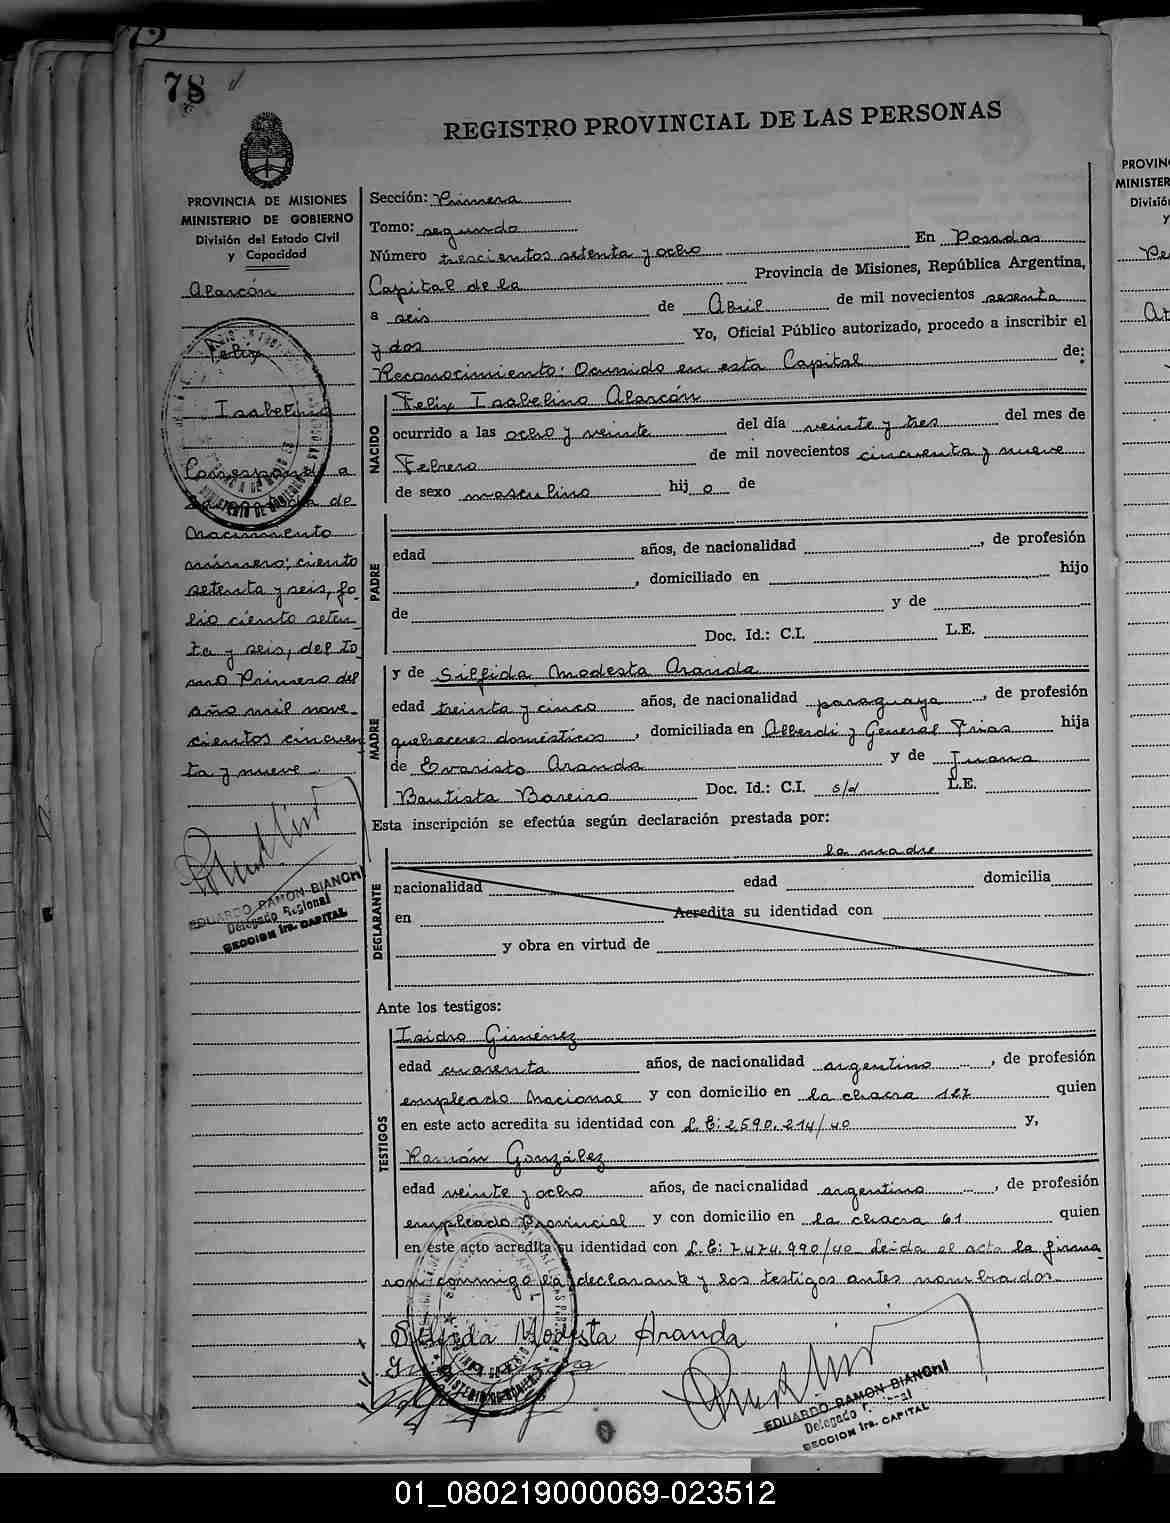 78
REGISTRO PROVINCIAL DE LAS PERSONAS
PROVINCIA DE MISIONES
MINISTERIO DE GOBIERNO
División del Estado Civil
y Capacidad
Alarcón
Felix
Isabelino
Corresponde a
de
Nacimiento
número: ciento
setenta y seis, fo-
lio ciento seten-
ta y seis, del to-
mo Primero del
año mil nove-
cientos cincuen
ta y nueve
EDUARDO RAMON BIANCHI
Delegado Regional
SECCION 1ra. CAPITAL
Sección: Primera
Tomo: segundo
Número trescientos setenta y ocho En Posadas
Capital de la Provincia de Misiones, República Argentina,
a seis de Abril de mil novecientos sesenta
y dos Yo, Oficial Público autorizado, procedo a inscribir el
Reconocimiento: Ocurrido en esta Capital de:
NACIDO
Felix Isabelino Alarcón
ocurrido a las ocho y veinte del día veinte y tres del mes de
Febrero de mil novecientos cincuenta y nueve
de sexo masculino hijo de
PADRE
edad años, de nacionalidad , de profesión
, domiciliado en hijo
de y de
Doc. Id.: C.I. L.E.
MADRE
y de Silfida Modesta Aranda
edad treinta y cinco años, de nacionalidad paraguaya , de profesión
quehaceres domésticos , domiciliada en Alberdi y General Frias hija
de Evaristo Aranda y de Juana
Bautista Bareiro Doc. Id.: C.I. s/d L.E.
Esta inscripción se efectúa según declaración prestada por:
la madre
DECLARANTE
nacionalidad edad domicilia
en Acredita su identidad con
y obra en virtud de
Ante los testigos:
TESTIGOS
Isidro Giménez
edad cuarenta años, de nacionalidad argentino , de profesión
empleado Nacional y con domicilio en la chacra 127 quien
en este acto acredita su identidad con L.E: 2590.214/40 y,
Ramón González
edad veinte y ocho años, de nacicnalidad argentino , de profesión
empleado Provincial y con domicilio en la chacra 61 quien
en este acto acredita su identidad con L.E: 7.474.990/40 Leida el acta la firma-
ron conmigo la declarante y los testigos antes nombrados.
Silfida Modesta Aranda
EDUARDO RAMON BIANCHI
Delegado
SECCION 1ra. CAPITAL
PROVIN
MINISTER
División
y
01_080219000069-023512